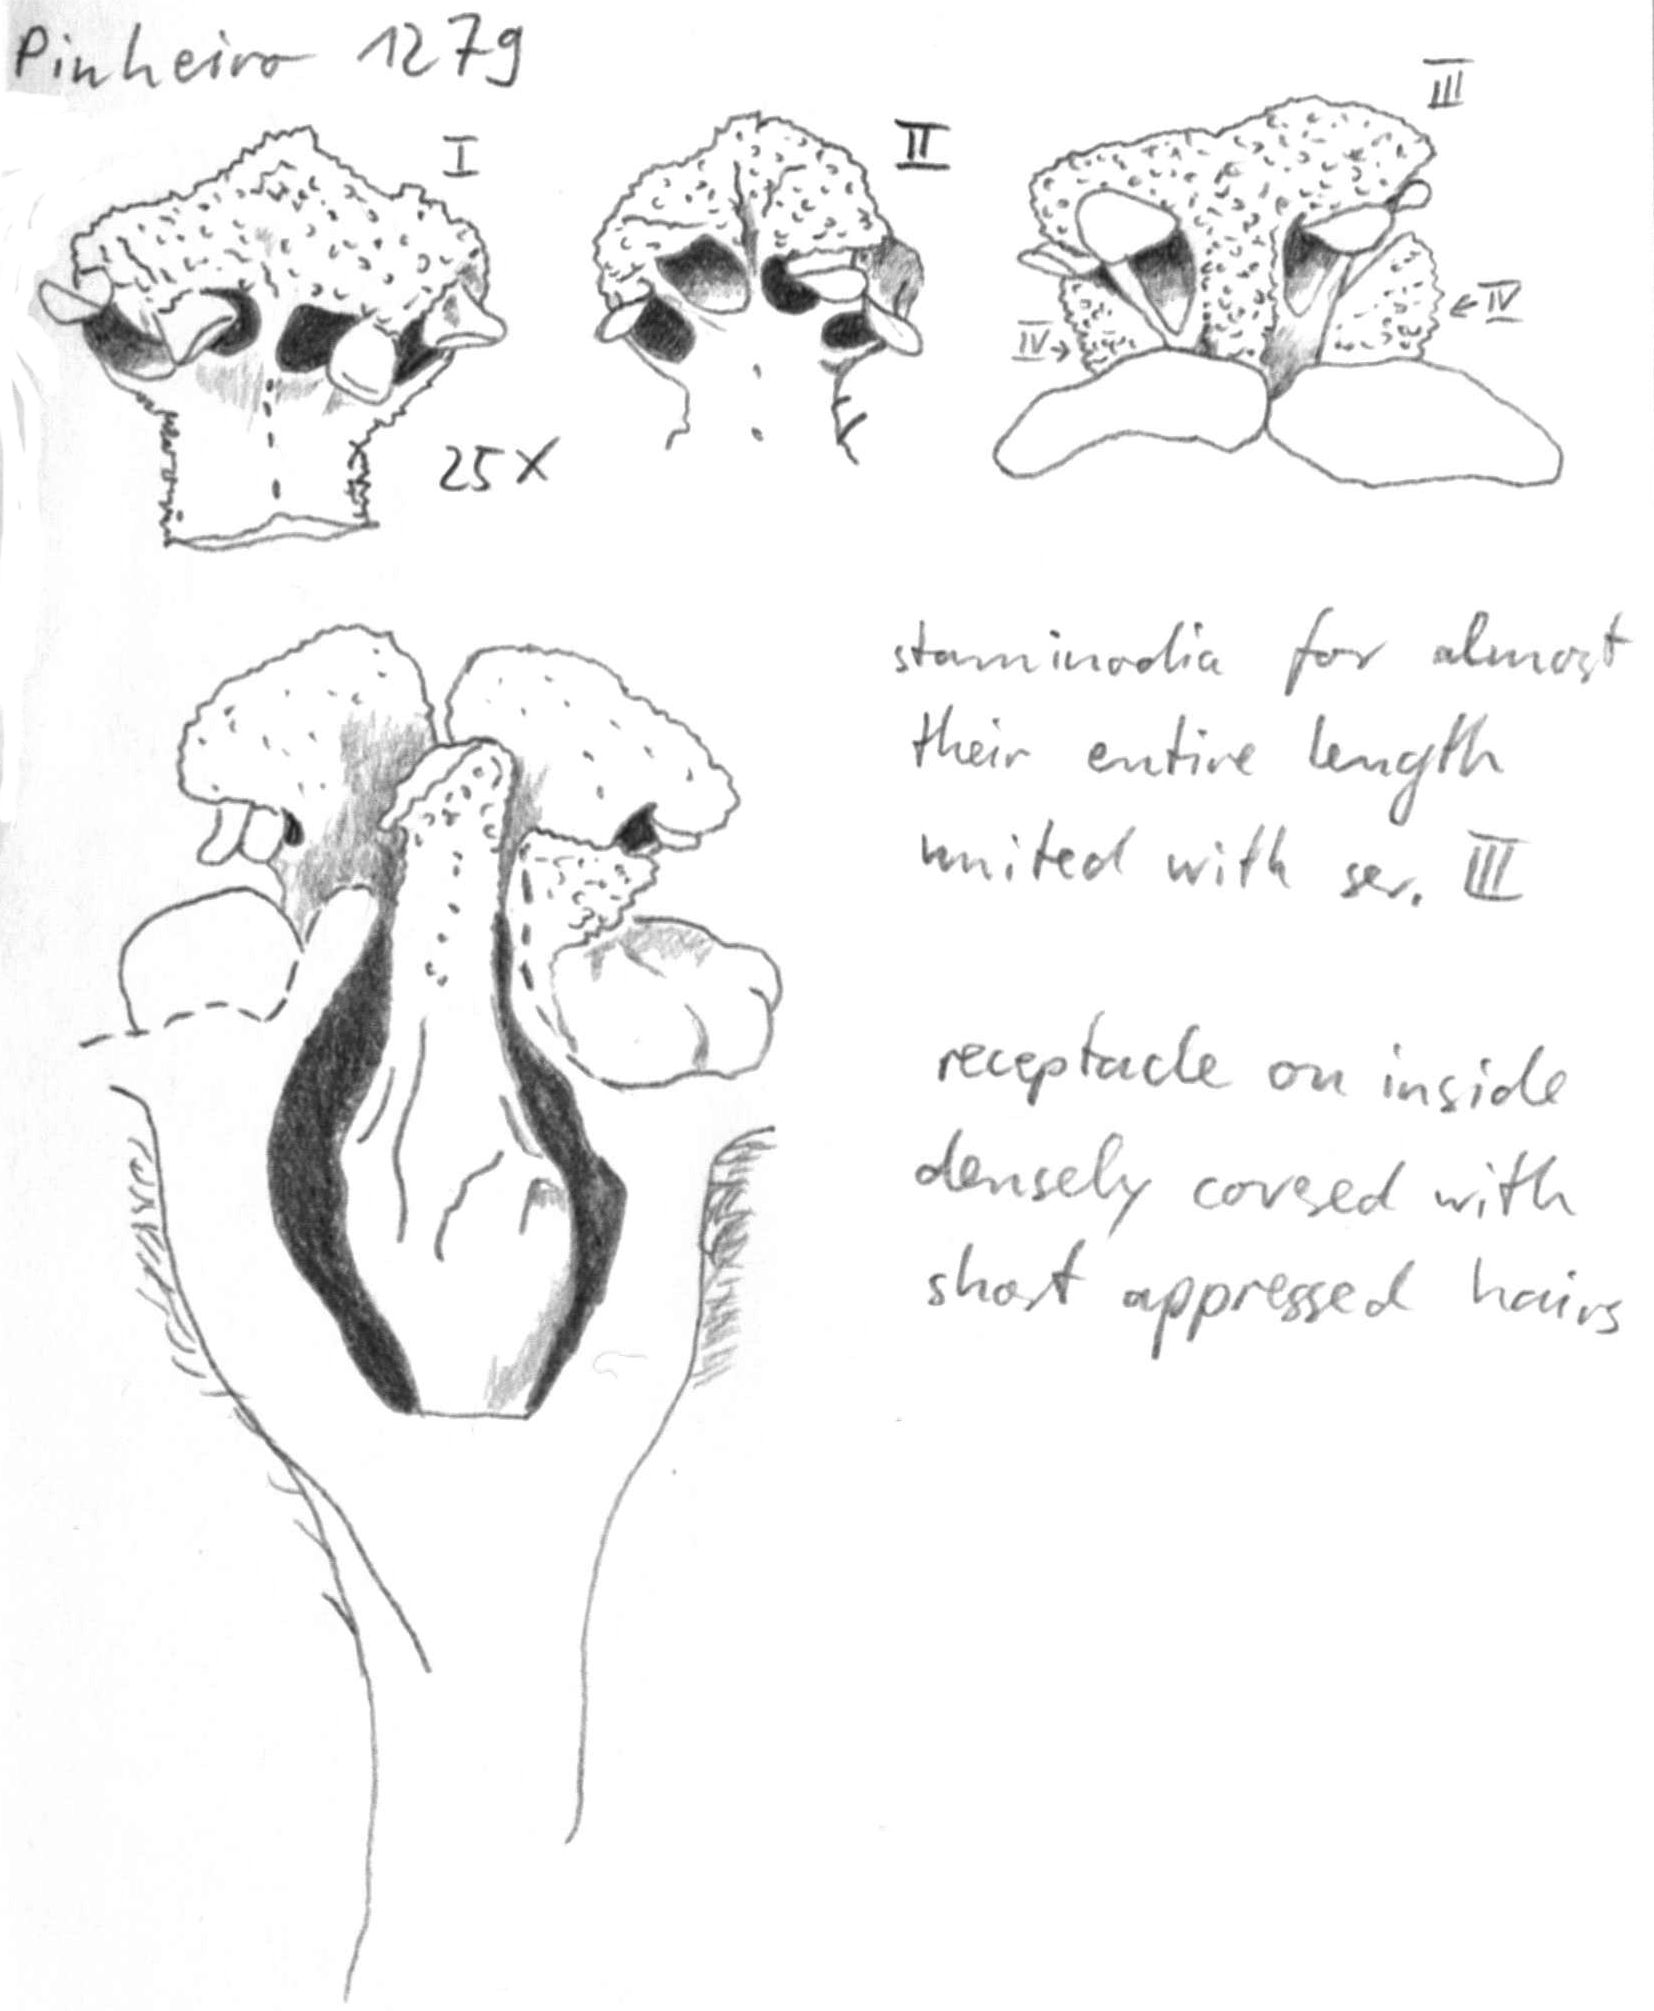 Pinheiro 1279
I
II
III
IV→
←IV
25x
staminodia for almost
their entire length
united with ser. III
receptacle on inside
densely covered with
short appressed hairs